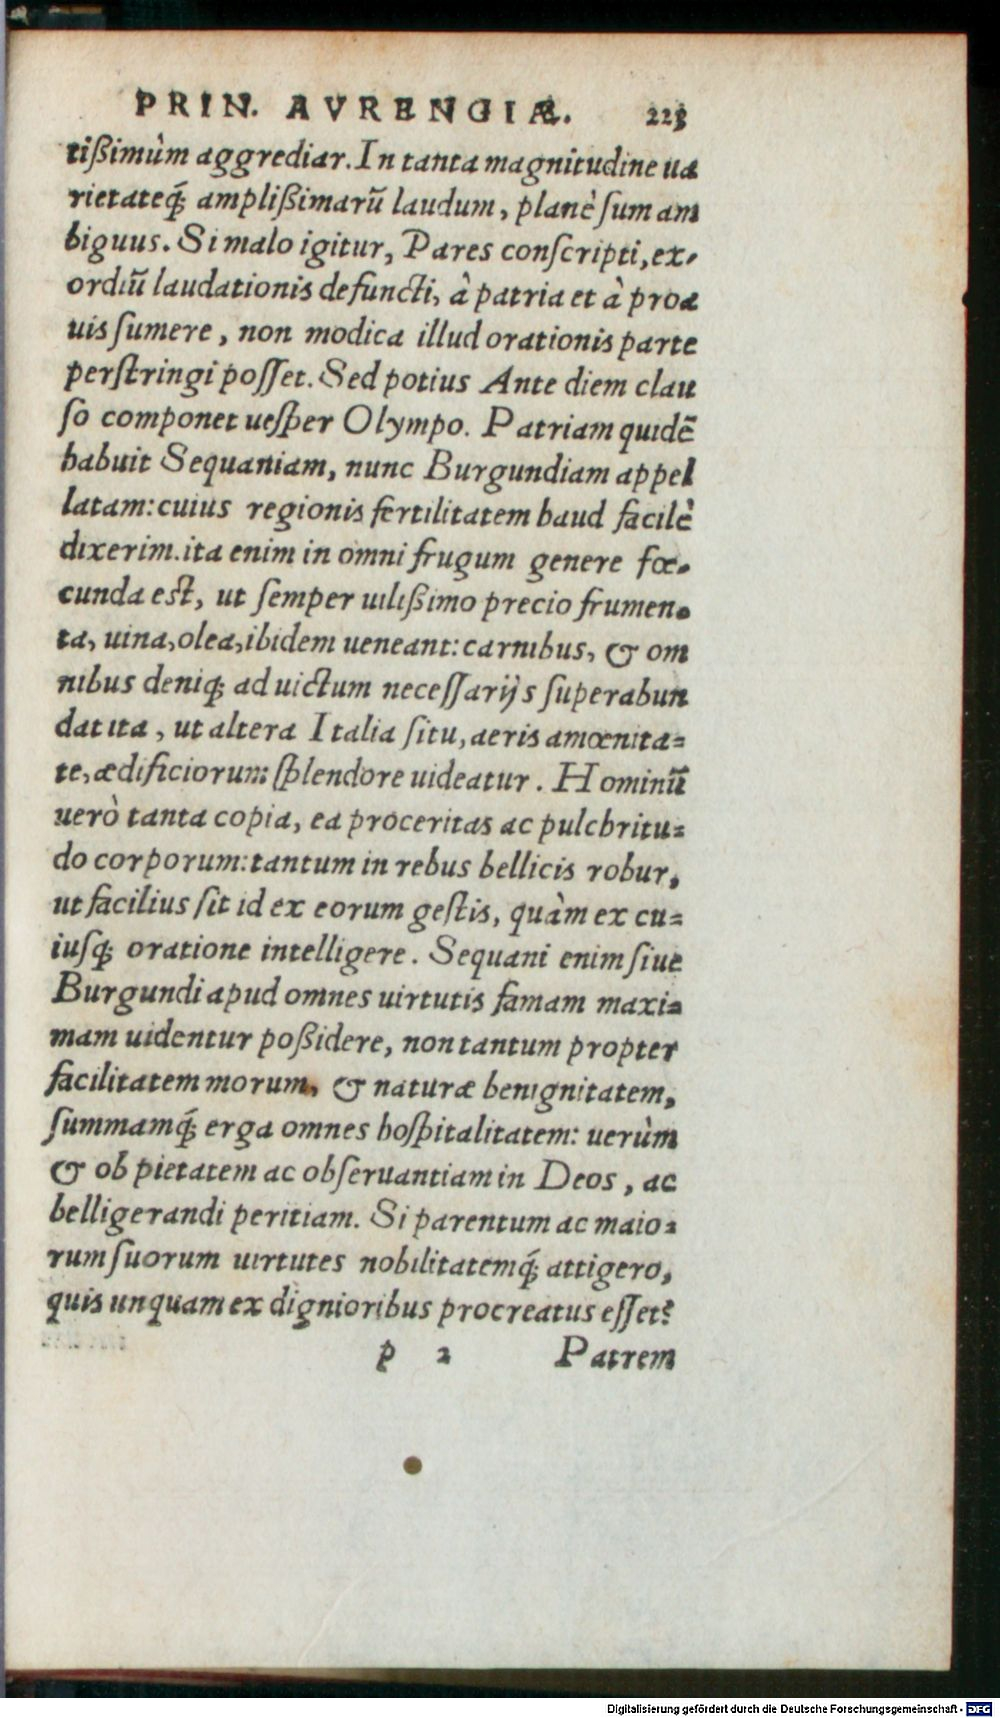 PRIN. AVRENGIÆ. 223
tißimùm aggrediar. In tanta magnitudine ua
rietateq́; amplißimarū laudum, planè sum am
biguus. Si malo igitur, Pares conscripti, ex-
ordiū laudationis defuncti, à patria et à proa
uis sumere, non modica illud orationis parte
perstringi posset. Sed potius Ante diem clau
so componet uesper Olympo. Patriam quidē
habuit Sequaniam, nunc Burgundiam appel
latam: cuius regionis fertilitatem haud facilè
dixerim. ita enim in omni frugum genere fœ-
cunda est, ut semper uilißimo precio frumen-
ta, uina, olea, ibidem ueneant: carnibus, & om
nibus deniq; ad uictum necessarijs superabun
dat ita, ut altera Italia situ, aeris amœnita-
te, ædificiorum splendore uideatur. Hominū
uerò tanta copia, ea proceritas ac pulchritu-
do corporum: tantum in rebus bellicis robur,
ut facilius sit id ex eorum gestis, quàm ex cu-
iusq; oratione intelligere. Sequani enim siue
Burgundi apud omnes uirtutis famam maxi-
mam uidentur poßidere, non tantum propter
facilitatem morum, & naturæ benignitatem,
summamq́; erga omnes hospitalitatem: uerùm
& ob pietatem ac obseruantiam in Deos, ac
belligerandi peritiam. Si parentum ac maio-
rum suorum uirtutes nobilitatemq́; attigero,
quis unquam ex dignioribus procreatus esset?
p 2 Patrem
Digitalisierung gefördert durch die Deutsche Forschungsgemeinschaft - DFG